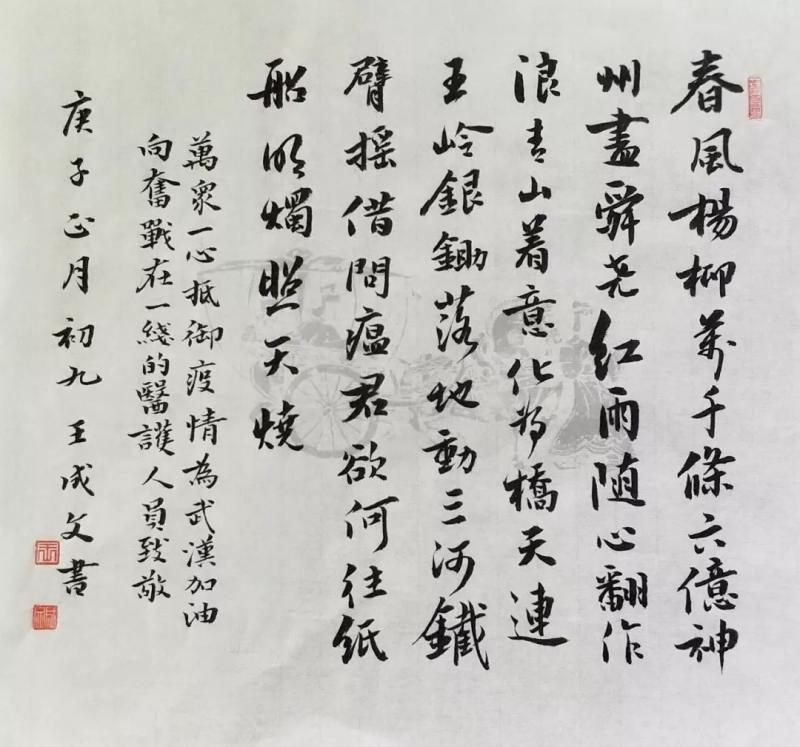 春風楊柳萬千條六億神
州盡舜尧紅雨随心翻作
浪青山着意化為橋天連
五岭銀鋤落地動三河鐵
臂摇借問瘟君欲何往紙
船明燭照天燒
萬衆一心抵御疫情為武漢加油
向奮戰在一綫的醫護人員致敬
庚子正月初九 王成文書